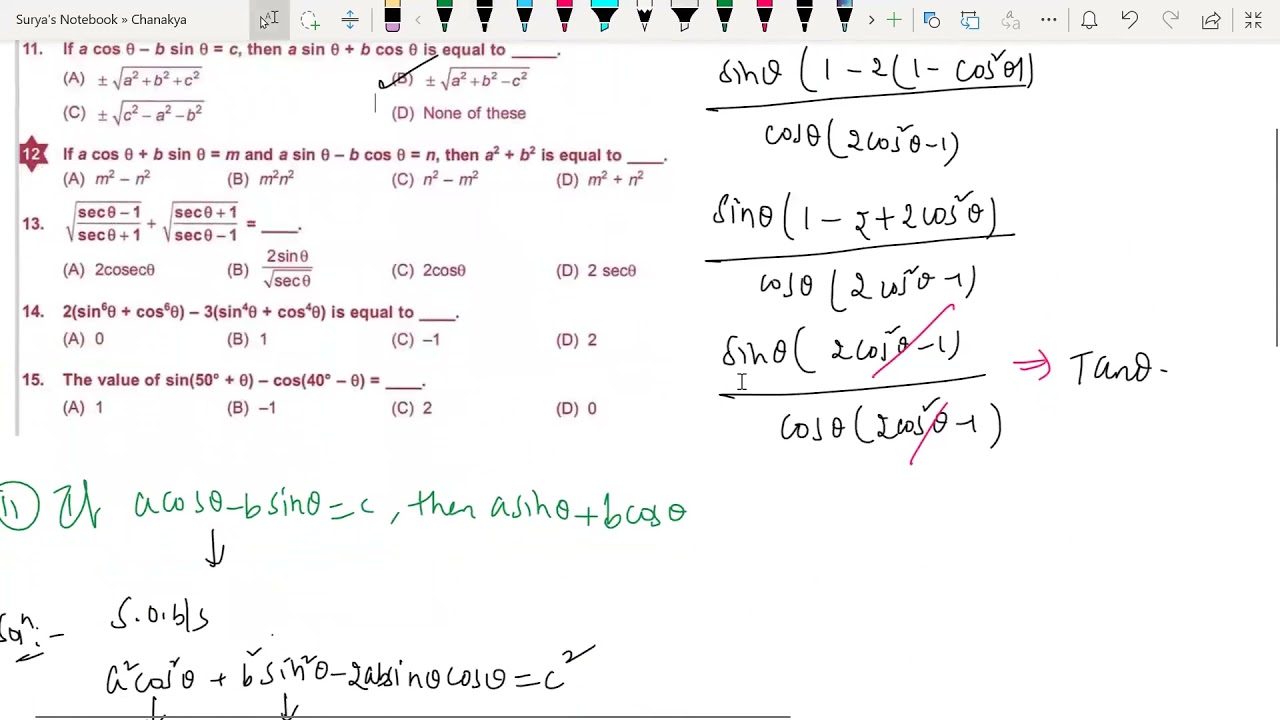 Surya's Notebook » Chanakya
11. If a cos θ – b sin θ = c, then a sin θ + b cos θ is equal to ____.
(A) ± √(a² + b² + c²) (B) ± √(a² + b² – c²)
(C) ± √(c² – a² – b²) (D) None of these
12 If a cos θ + b sin θ = m and a sin θ – b cos θ = n, then a² + b² is equal to ____.
(A) m² – n² (B) m²n² (C) n² – m² (D) m² + n²
13. √((secθ – 1)/(secθ + 1)) + √((secθ + 1)/(secθ – 1)) = ____.
(A) 2cosecθ (B) 2sinθ/√secθ (C) 2cosθ (D) 2 secθ
14. 2(sin⁶θ + cos⁶θ) – 3(sin⁴θ + cos⁴θ) is equal to ____.
(A) 0 (B) 1 (C) –1 (D) 2
15. The value of sin(50° + θ) – cos(40° – θ) = ____.
(A) 1 (B) –1 (C) 2 (D) 0
sinθ (1 – 2(1 – cos²θ))
cosθ (2cos²θ – 1)
sinθ (1 – 2 + 2cos²θ)
cosθ (2cos²θ – 1)
sinθ (2cos²θ – 1) ⇒ Tanθ.
cosθ (2cos²θ – 1)
11 If acosθ – bsinθ = c, then asinθ + bcosθ
↓
Solⁿ: – S.O.b/s
a²cos²θ + b²sin²θ – 2absinθcosθ = c²